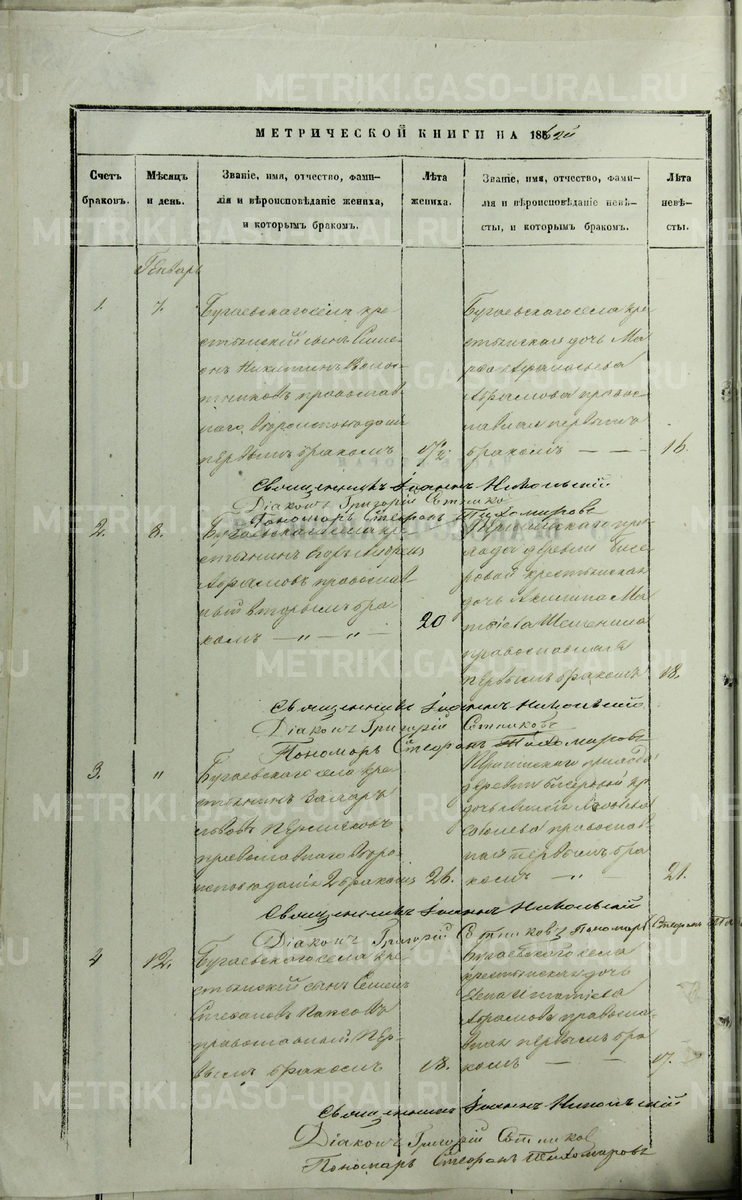 МЕТРИЧЕСКОЙ КНИГИ НА 1862й
Счетъ браковъ.
Мѣсяцъ и день.
Званіе, имя, отчество, фами-
лія и вѣроисповѣданіе жениха,
и которымъ бракомъ.
Лѣта жениха.
Званіе, имя, отчество, фами-
лія и вѣроисповѣданіе невѣ-
сты, и которымъ бракомъ.
Лѣта невѣ-
сты.
Генварь
1.
7.
Бугаевскаго села кре
стьянскій сынъ Симе
онъ Никитинъ
православ
наго вѣроисповѣданія
первымъ бракомъ
17½
Бугаевскаго села кре
стьянская дочь Ма
Абрамова правос
лавная первымъ
бракомъ — —
16.
Священникъ Іоаннъ Никольскій
Діаконъ Григорій Сотников
Пономарь Стефанъ Тихомировъ
2.
8.
Бугаевскаго села кре
стьянинъ
Абрамовъ православ
ный вторымъ бра
комъ — " — " —
20
при
хода деревни Бисе
ровой крестьянская
дочь Акилина Ма
твіева
православная
первымъ бракомъ
18.
Священникъ Іоаннъ Никольскій
Діаконъ Григорій Сотниковъ
Пономарь Стефанъ Тихомировъ
3.
"
Бугаевскаго села кре
стьянинъ Захаръ
Львовъ Пермяковъ
православнаго вѣро
исповѣданія 2 бракомъ
26.
прихода
деревни Бисеровой кр
дочь
православ
ная первымъ бра
комъ — " —
21.
Священникъ Іоаннъ Никольскій
Діаконъ Григорій Сотниковъ Пономарь Стефанъ
4
12.
Бугаевскаго села кре
стьянскій сынъ Семенъ
Степановъ
православный пер
вымъ бракомъ
18.
Бугаевскаго села
крестьянская дочь
Елена Игнатіева
Абрамова правосла
вная первымъ бра
комъ — —
17.
Священникъ Іоаннъ Никольскій
Діаконъ Григорій Сотников
Пономарь Стефанъ Тихомировъ
METRIKI.GASO-URAL.RU